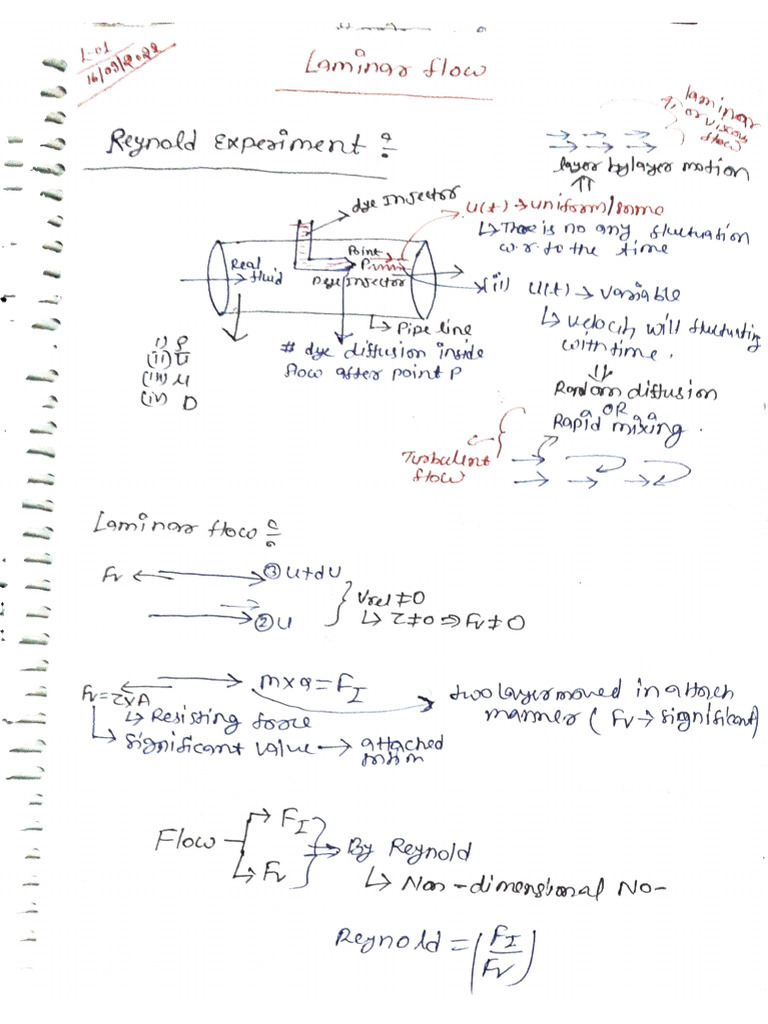 L-01
16/03/2022
Laminar flow
laminar
or viscous
flow
Reynold Experiment :
layer by layer motion
dye Injector
U(t) → uniform/same
↳ There is no any fluctuation
w.r.to the time
Point
P
Real
fluid
Dye Injector
(ii) U(t) → variable
↳ Pipe line
↳ velocity will fluctuating
with time.
i) ρ
(ii) U
(iii) μ
(iv) D
# dye diffusion inside
flow after point P
Random diffusion
OR
Rapid mixing.
Turbulent
flow
Laminar flow :
Fv ← → ③ U+dU
→ ② U
Vrel ≠ 0
↳ τ ≠ 0 ⇒ Fv ≠ 0
m×a = F_I
Fv = τxA
↳ Resisting force
↳ significant value → attached
two layer moved in attach
manner ( Fv → significant)
Flow
F_I
Fv
By Reynold
↳ Non-dimensional No-
Reynold = (F_I/Fv)